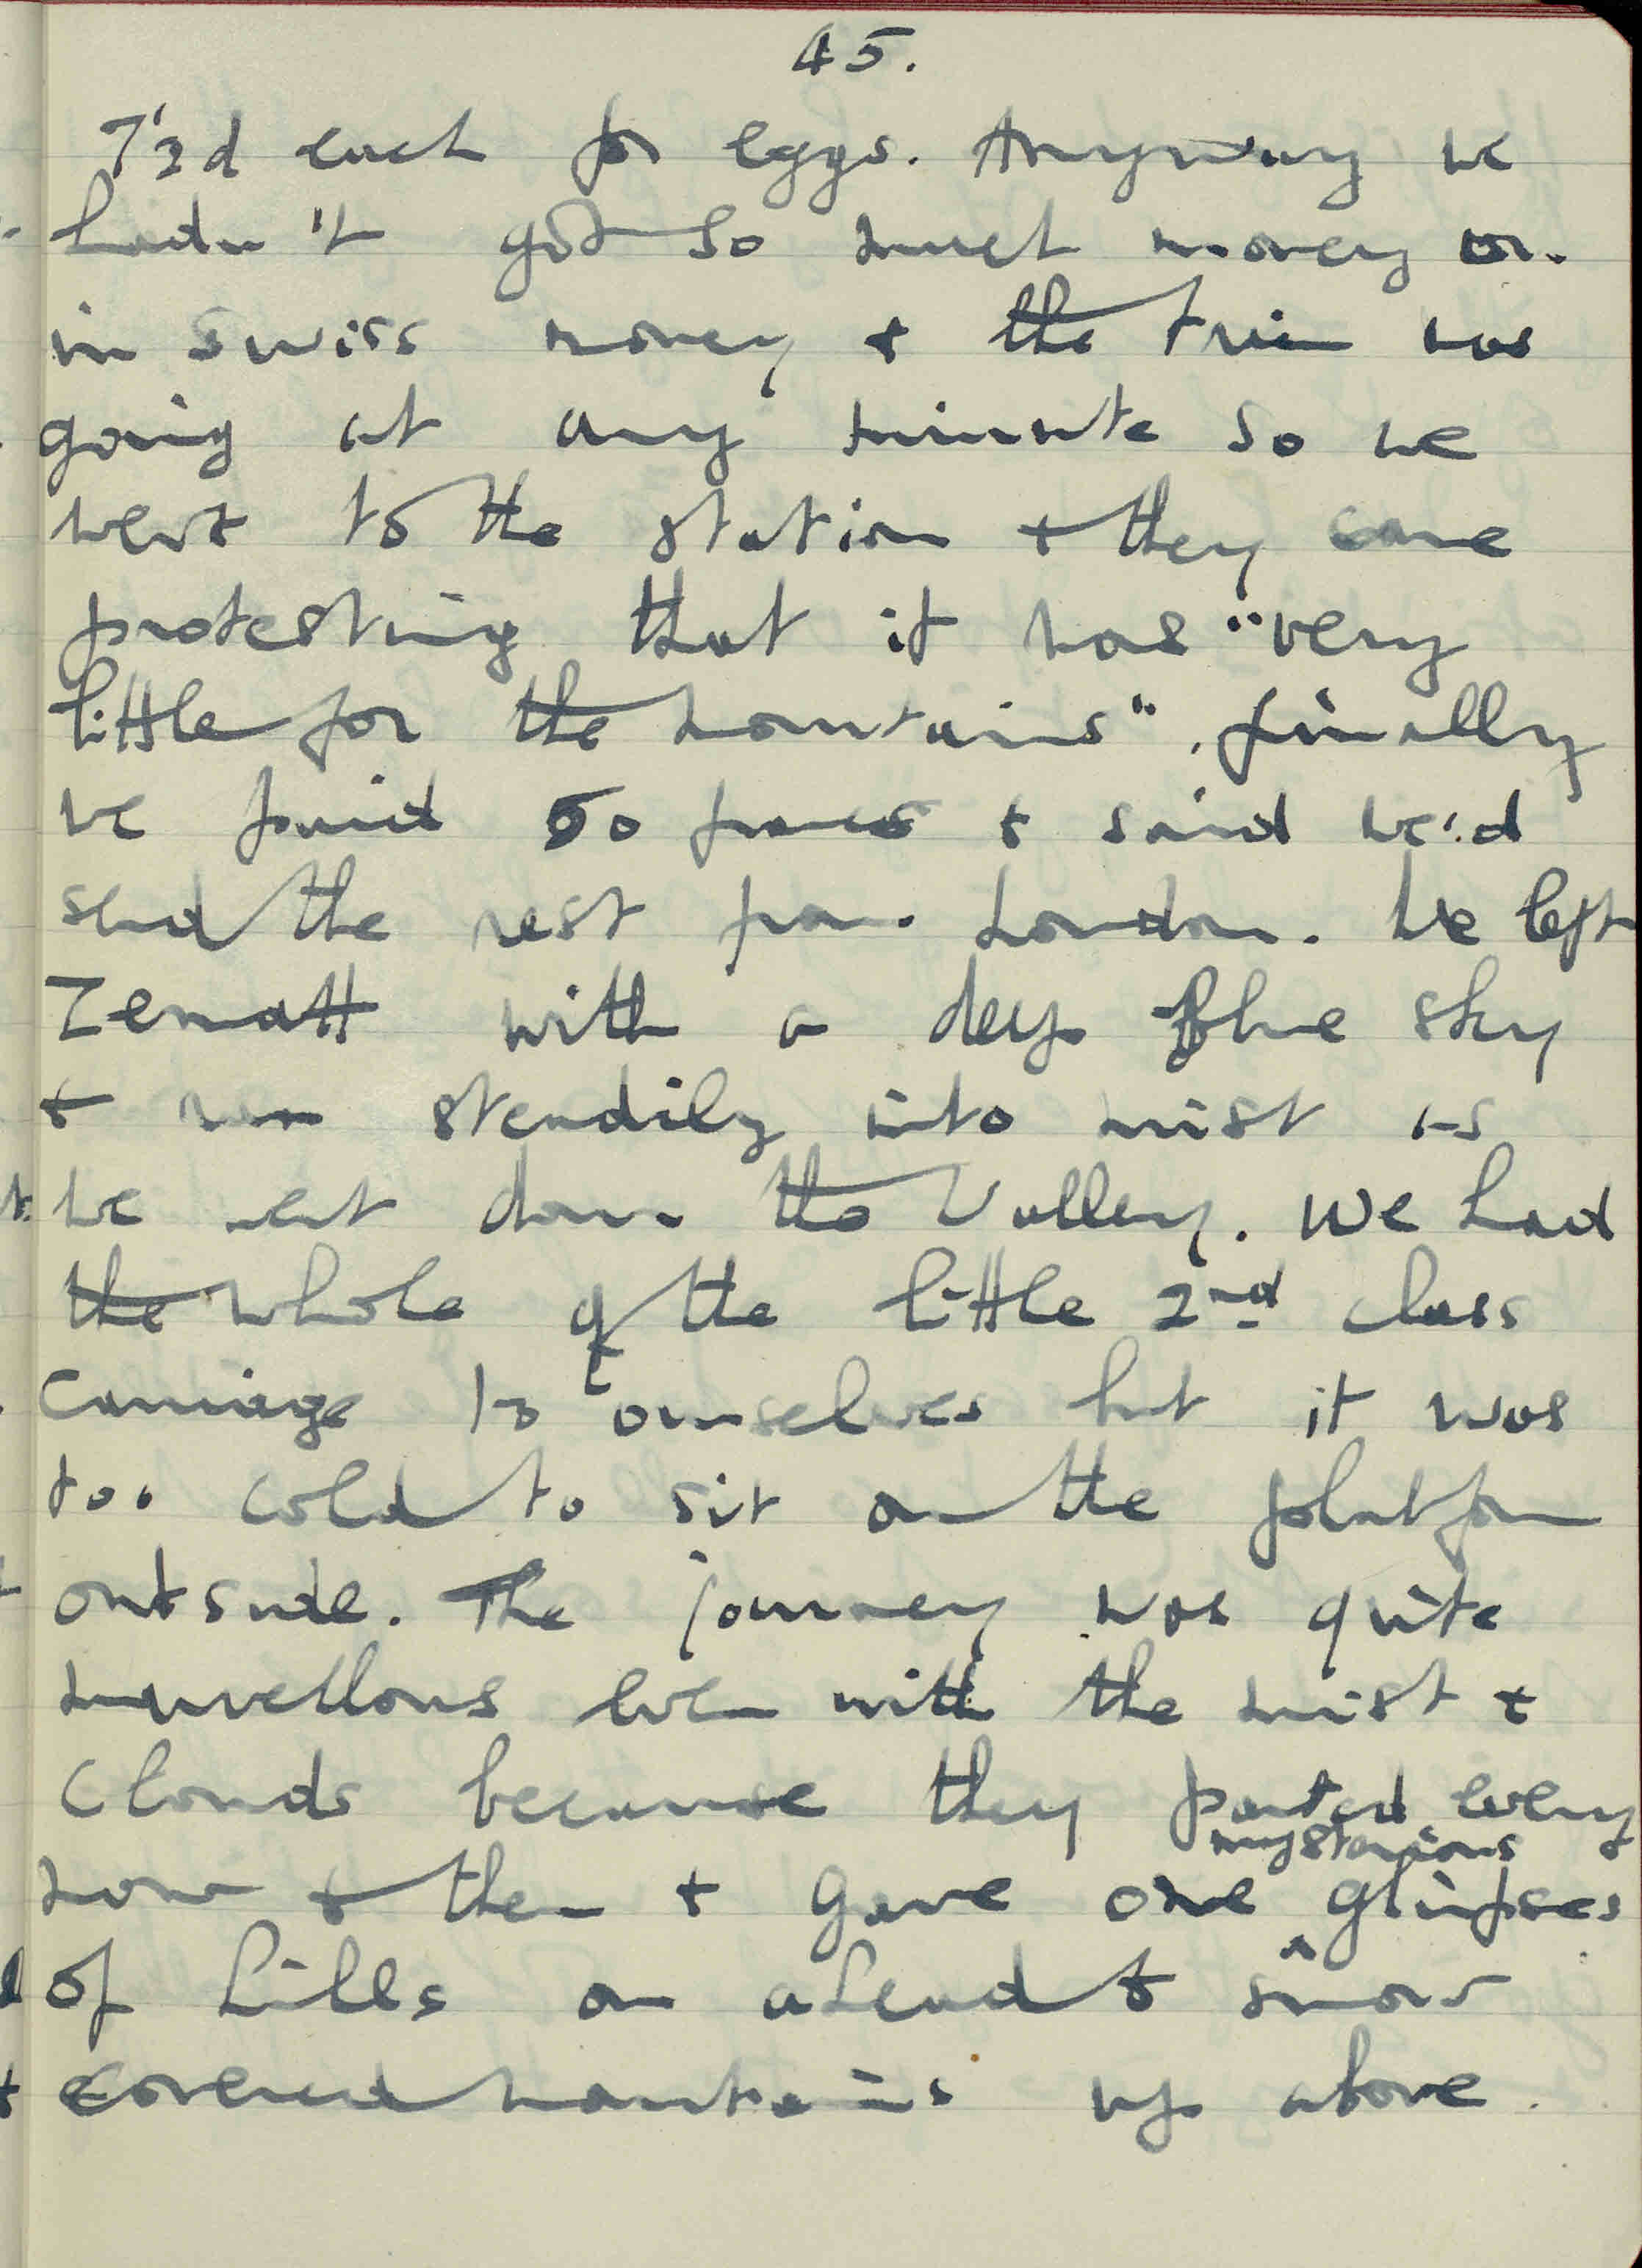 45.
7½d each for eggs. Anyway we
hadn't got so much money on.
in Swiss money + the train was
going at any minute so we
went to the station + they came
protesting that it was "very
little for the mountains". finally
we paid 50 francs + said we'd
send the rest from London. We left
Zermatt with a deep blue sky
+ ran steadily into mist as
we went down the Valley. We had
the whole of the little 2nd class
carriage to ourselves but it was
too cold to sit on the platform
outside. The journey was quite
marvellous even with the mist +
clouds because they parted every
now + then + gave one mysterious glimpses
of hills on ahead + snow
covered mountains up above.